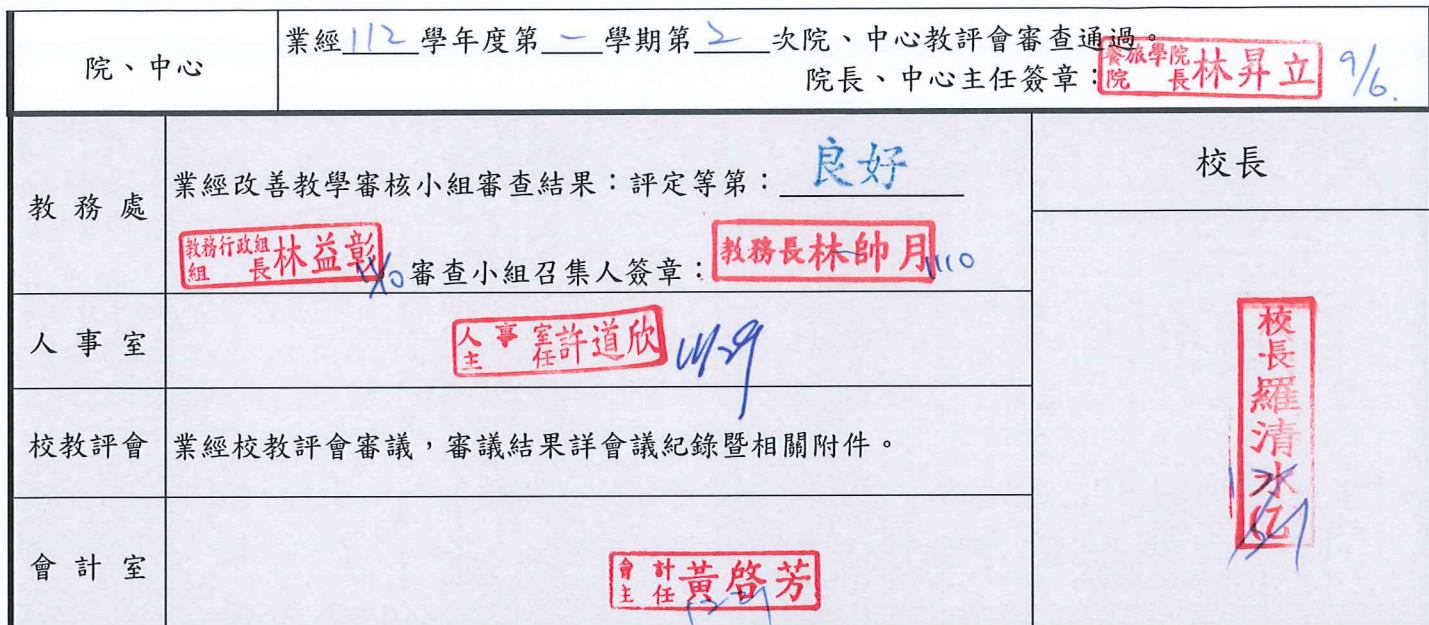 院、中心
業經112學年度第一學期第2次院、中心教評會審查通過。
院長、中心主任簽章：餐旅學院院長林昇立 9/6.
教務處
業經改善教學審核小組審查結果：評定等第：良好
教務行政組組長林益彰 審查小組召集人簽章：教務長林帥月 1110
人事室
人事室主任許道欣
校教評會
業經校教評會審議，審議結果詳會議紀錄暨相關附件。
會計室
會計主任黃啓芳
校長
校長羅清水